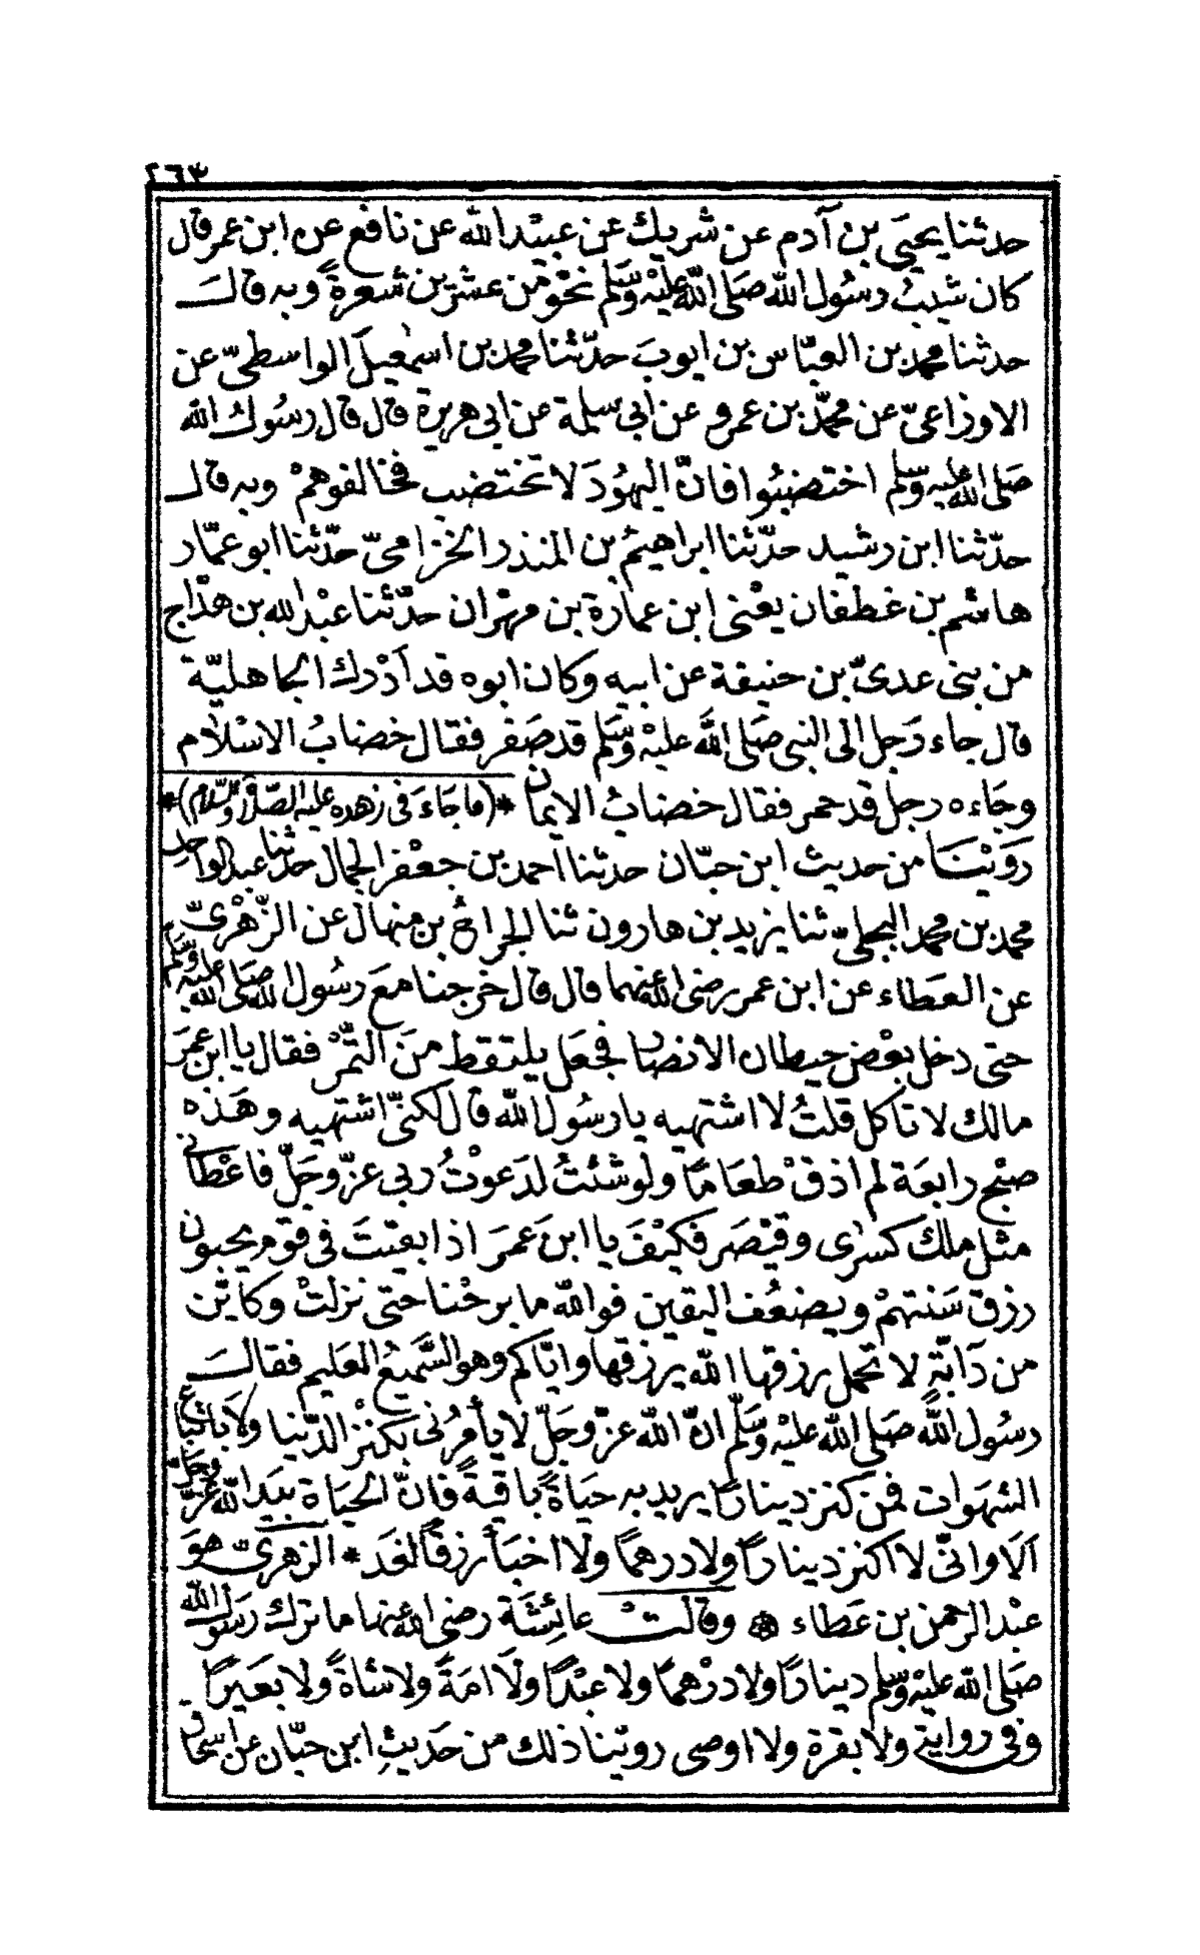 ٢٦٣
حدثنا يحيى بن آدم عن شريك عن عبيد الله عن نافع عن ابن عمر قال
كان شيب رسول الله صلى الله عليه وسلم نحو من عشرين شعرة وبه قال
حدثنا محمد بن العباس بن ايوب حدثنا محمد بن اسمعيل الواسطى عن
الاوزاعى عن محمد بن عمرو عن ابى سلمة عن ابى هريرة قال قال رسول الله
صلى الله عليه وسلم اختضبوا فان اليهود لا تختضب فخالفوهم وبه قال
حدثنا ابن رشيد حدثنا ابراهيم بن المنذر الخزامى حدثنا ابو عمار
هاشم بن غطفان يعنى ابن عمارة بن مهران حدثنا عبد الله بن هذاج
من بنى عدى بن حنيفة عن ابيه وكان ابوه قد أدرك الجاهلية
قال جاء رجل الى النبى صلى الله عليه وسلم قد صفر فقال خضاب الاسلام
وجاءه رجل قد حمر فقال خضاب الايمان *(ما جاء فى زهده عليه الصلاة والسلام)*
روينا من حديث ابن حبان حدثنا احمد بن جعفر الجمال حدثنا عبد الواحد
محمد بن محمد البجلى ثنا يزيد بن هارون ثنا الجراح بن منهال عن الزهرى
عن العطاء عن ابن عمر رضى الله عنهما قال قال خرجنا مع رسول الله صلى الله عليه وسلم
حتى دخل بعض حيطان الانصار فجعل يلتقط من التمر فقال يا ابن عمر
مالك لا تاكل قلت لا اشتهيه يا رسول الله قال لكنى اشتهيه وهذه
صبح رابعة لم اذق طعاما ولو شئت لدعوت ربى عز وجل فاعطانى
مثل ملك كسرى وقيصر فكيف يا ابن عمر اذا بقيت فى قوم يحبون
رزق سنتهم ويضعف اليقين فوالله ما برحنا حتى نزلت وكاين
من دابة لا تحمل رزقها الله يرزقها واياكم وهو السميع العليم فقال
رسول الله صلى الله عليه وسلم ان الله عز وجل لا يأمرنى بكنز الدنيا ولا باتباع
الشهوات فمن كنز دينارا يريد به حياة باقية فان الحياة بيد الله عز وجل
الا وانى لا اكنز دينارا ولا درهما ولا اخبأ رزقا لغد * الزهرى هو
عبد الرحمن بن عطاء * وقالت عائشة رضى الله عنها ما ترك رسول الله
صلى الله عليه وسلم دينارا ولا درهما ولا عبدا ولا امة ولا شاة ولا بعيرا
وفى رواية ولا بقرة ولا اوصى روينا ذلك من حديث ابن حبان عن اسحاق